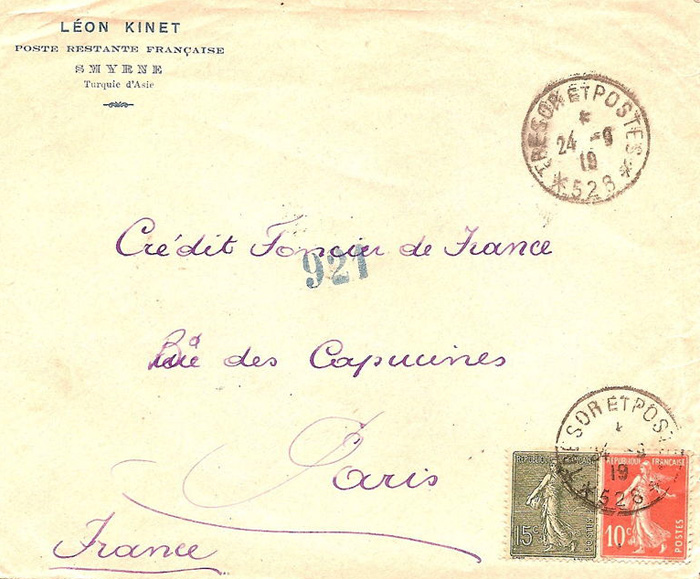 LÉON KINET
POSTE RESTANTE FRANÇAISE
SMYRNE
Turquie d'Asie
TRESOR ET POSTES
24 -9
19
*528*
Crédit Foncier de France
921
des Capucines
Paris
France
TRESOR ET POST
19
*528*
REPUBLIQUE FRANÇAISE
15c
POSTES
REPUBLIQUE FRANÇAISE
10c
POSTES